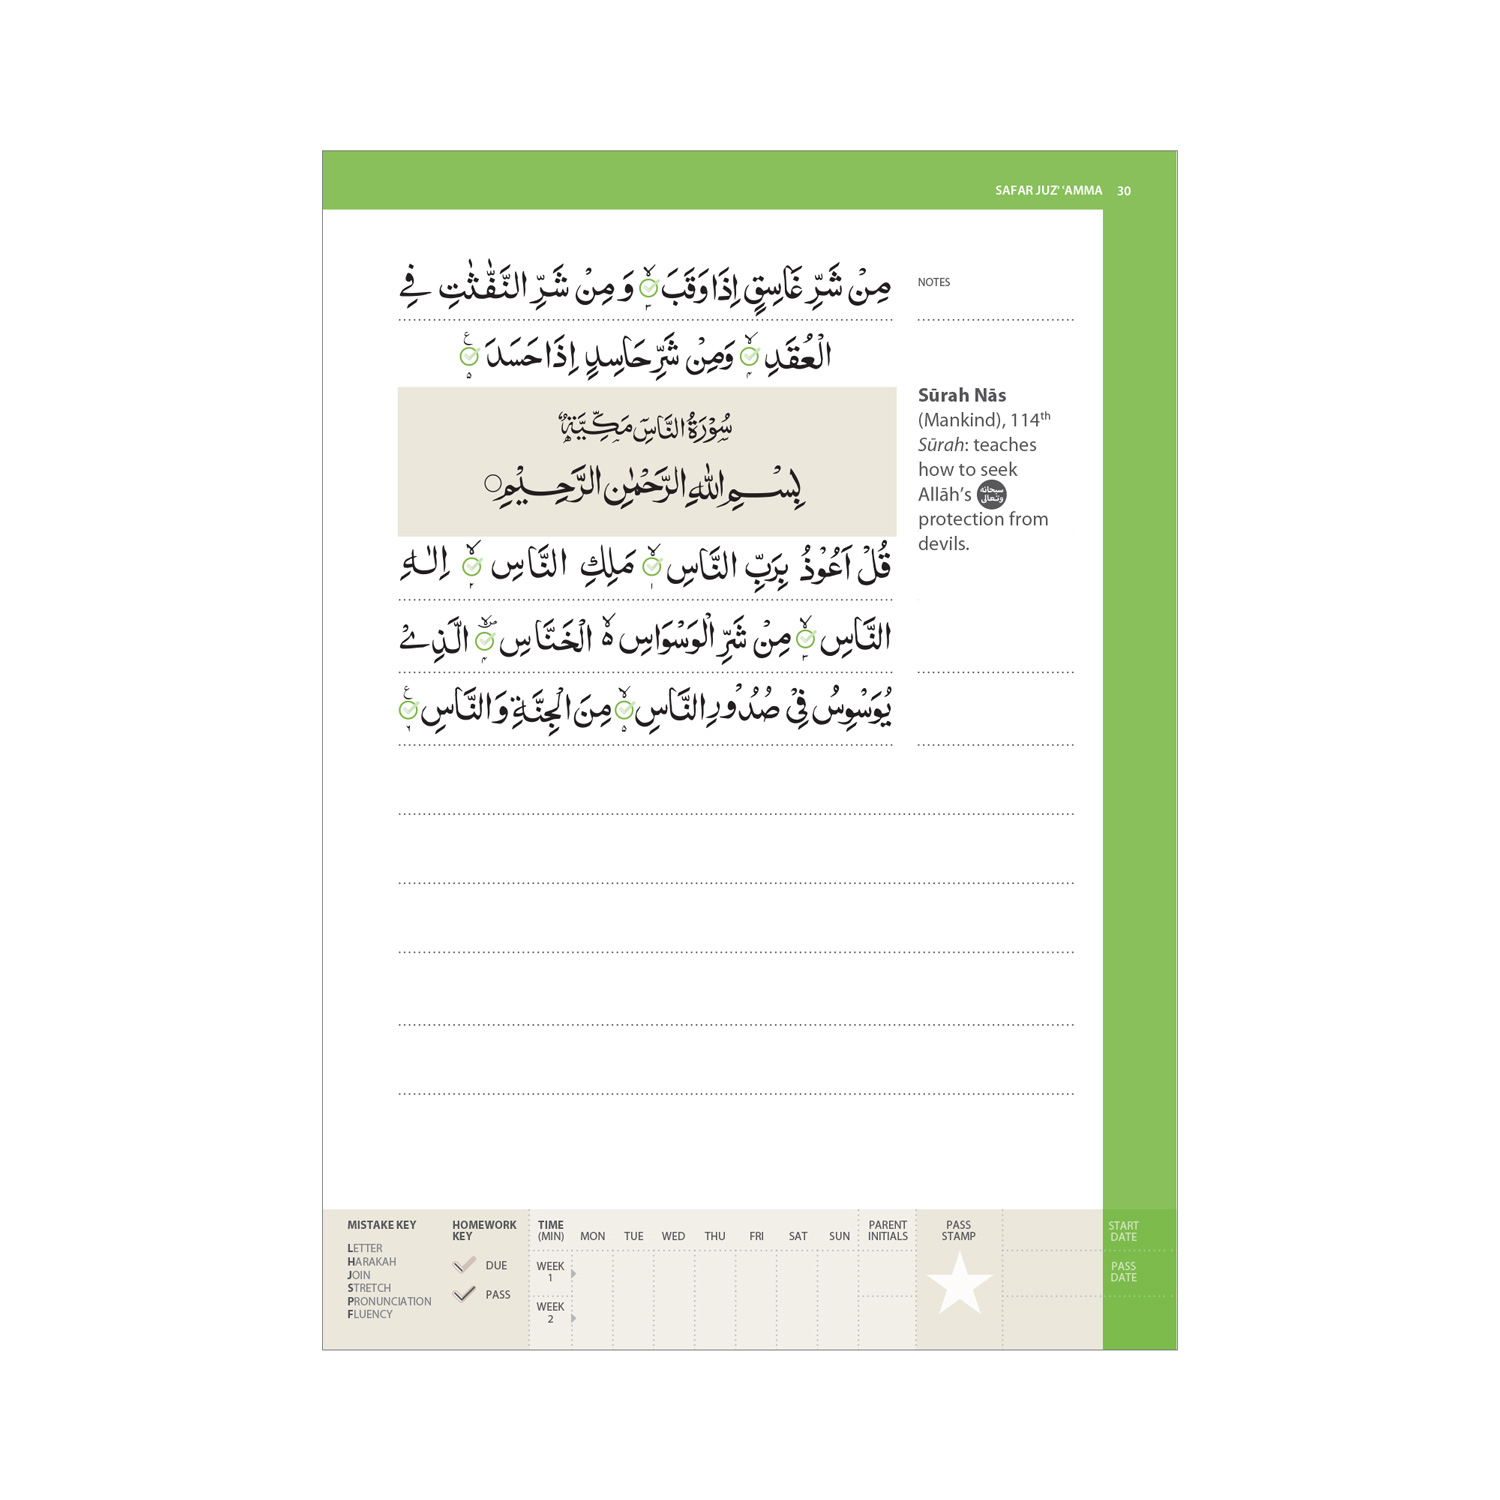 SAFAR JUZ' 'AMMA 30
مِنْ شَرِّ غَاسِقٍ اِذَا وَقَبَ ۙ۳ وَ مِنْ شَرِّ النَّفّٰثٰتِ فِي
NOTES
الْعُقَدِ ۙ۴ وَمِنْ شَرِّ حَاسِدٍ اِذَا حَسَدَ ع ۵
سُوْرَةُ النَّاسِ مَكِّيَّةٌ
بِسْمِ اللهِ الرَّحْمٰنِ الرَّحِيْمِ ○
Sūrah Nās
(Mankind), 114th
Sūrah: teaches
how to seek
Allāh's سبحانه وتعالى
protection from
devils.
قُلْ اَعُوْذُ بِرَبِّ النَّاسِ ۙ۱ مَلِكِ النَّاسِ ۙ۲ اِلٰهِ
النَّاسِ ۙ۳ مِنْ شَرِّ الْوَسْوَاسِ ەۙ الْخَنَّاسِ ۴ الَّذِيْ
يُوَسْوِسُ فِيْ صُدُوْرِ النَّاسِ ۙ۵ مِنَ الْجِنَّةِ وَالنَّاسِ ع ۶
MISTAKE KEY
LETTER
HARAKAH
JOIN
STRETCH
PRONUNCIATION
FLUENCY
HOMEWORK
KEY
DUE
PASS
TIME
(MIN) MON TUE WED THU FRI SAT SUN
WEEK
1
WEEK
2
PARENT
INITIALS
PASS
STAMP
START
DATE
PASS
DATE